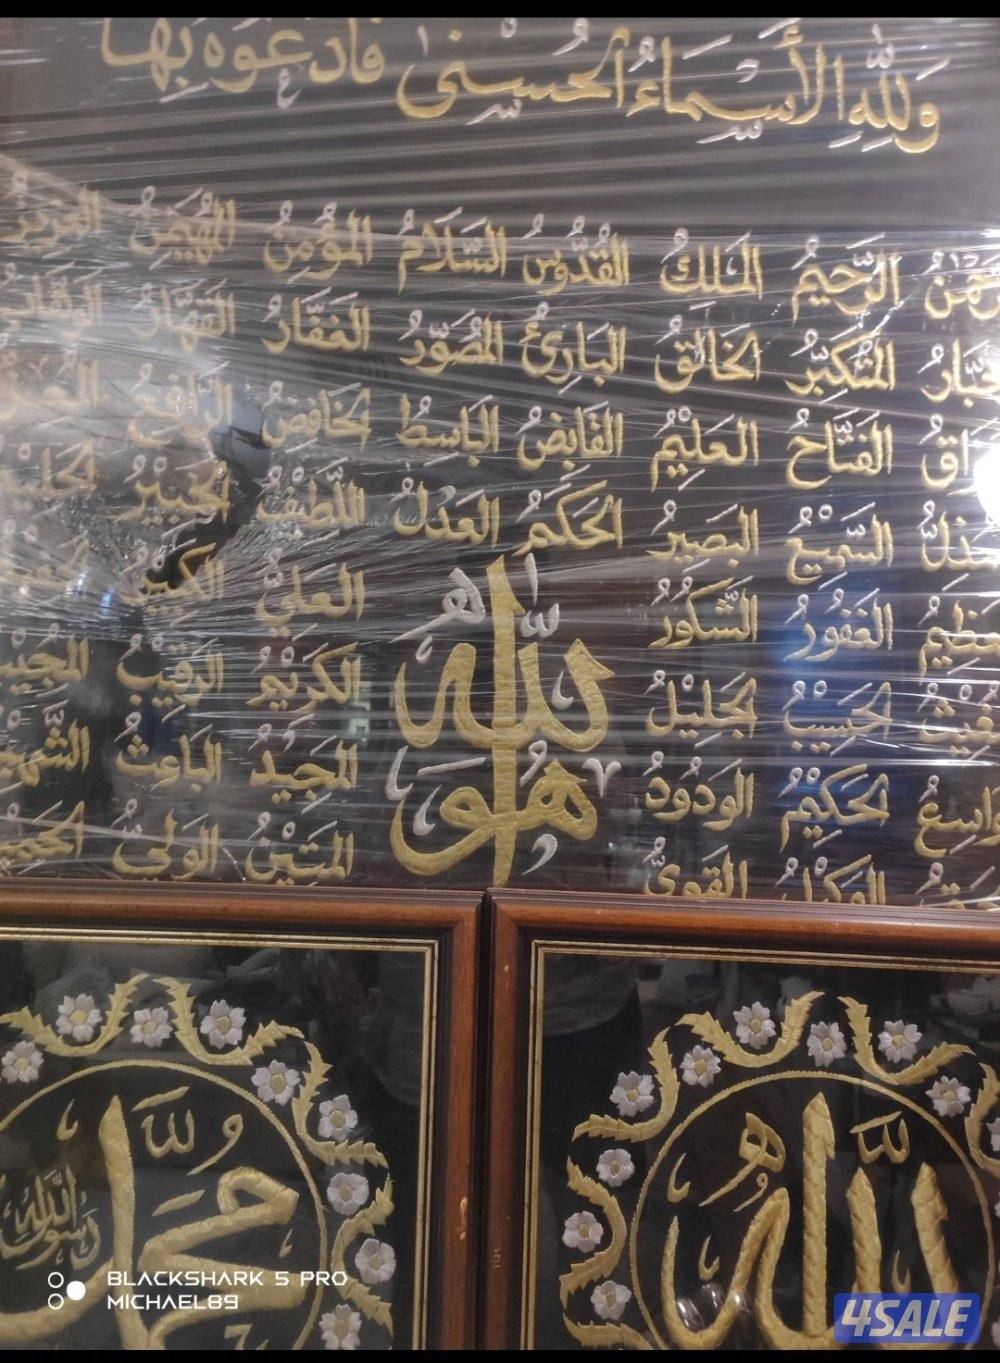 وَلِلَّهِ الأَسْمَاءُ الحُسْنَى فَادْعُوهُ بِهَا
الرَّحِيمُ المَلِكُ القُدُّوسُ السَّلَامُ المُؤْمِنُ المُهَيْمِنُ العَزِيزُ
المُتَكَبِّرُ الخَالِقُ البَارِئُ المُصَوِّرُ الغَفَّارُ القَهَّارُ الوَهَّابُ
الفَتَّاحُ العَلِيْمُ القَابِضُ البَاسِطُ الخَافِضُ الرَّافِعُ
السَّمِيْعُ البَصِيْرُ الحَكَمُ العَدْلُ اللَّطِيْفُ الخَبِيْرُ
الغَفُورُ الشَّكُورُ العَلِيُّ الكَبِيْرُ
الحَسِيْبُ الجَلِيْلُ الكَرِيْمُ الرَّقِيْبُ
الحَكِيْمُ الوَدُودُ المَجِيْدُ البَاعِثُ
الوَكِيْلُ القَوِيُّ المَتِيْنُ الوَلِيُّ
اللَّه
هُوَ
اللَّه
مُحَمَّد
رَسُولُ اللَّه
BLACKSHARK 5 PRO
MICHAEL89
4SALE